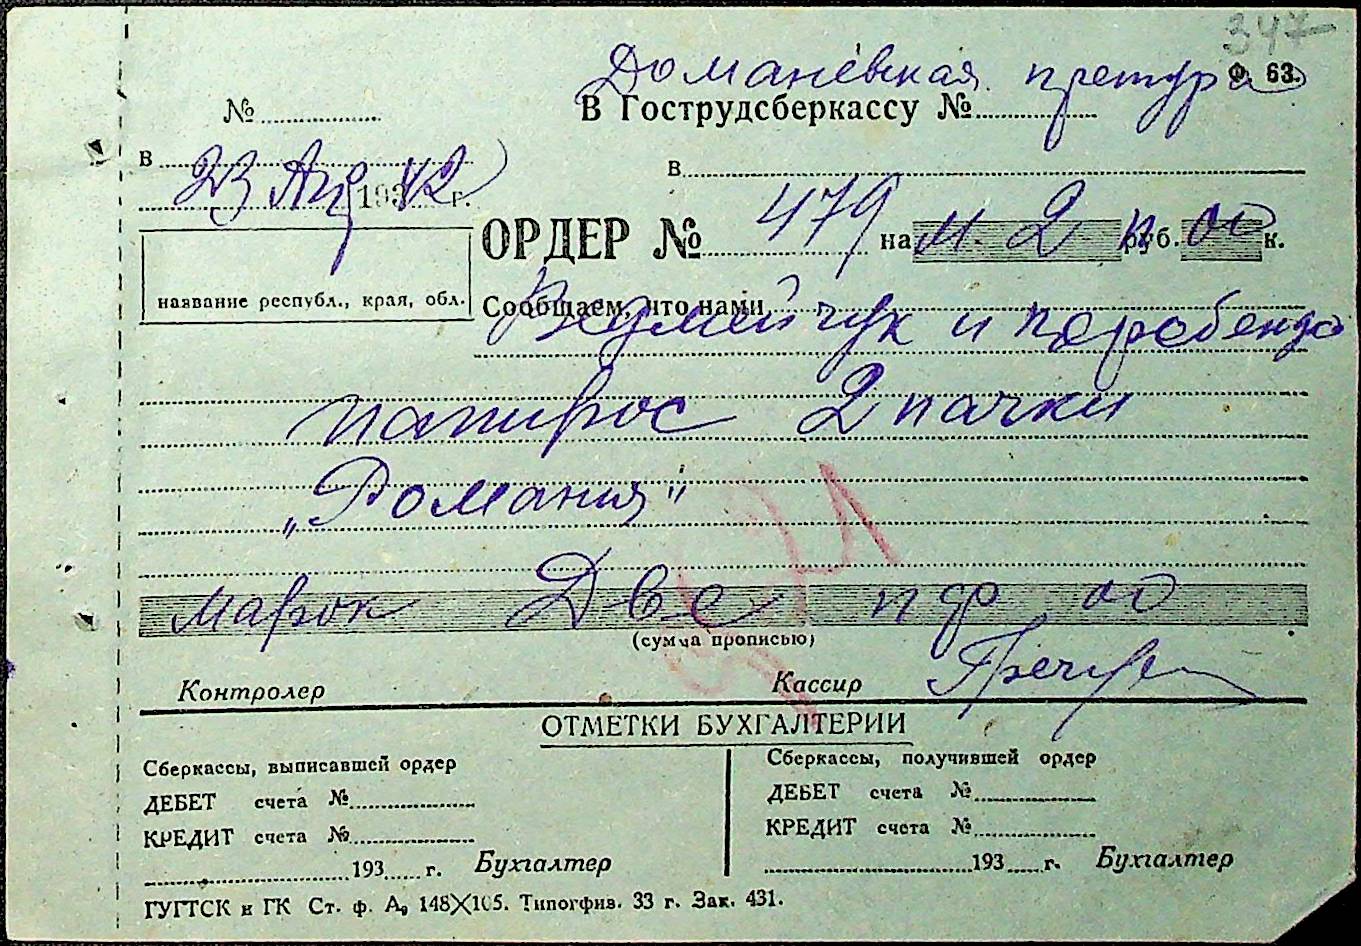 347
Доманёвская претура
Ф. 63.
№
В Гострудсберкассу №
в
в
23 Ащ 1942 г.
ОРДЕР № 479 на М. 2 п руб. 00 к.
название республ., края, обл.
Сообщаем, что нами
и
папирос 2 пачки
„Романия"
марок Две пф 00
(сумма прописью)
Контролер
Кассир
ОТМЕТКИ БУХГАЛТЕРИИ
Сберкассы, выписавшей ордер
Сберкассы, получившей ордер
ДЕБЕТ счета №
ДЕБЕТ счета №
КРЕДИТ счета №
КРЕДИТ счета №
193 г. Бухгалтер
193 г. Бухгалтер
ГУГТСК и ГК Ст. ф. А₆ 148X105. Типогфив. 33 г. Зак. 431.